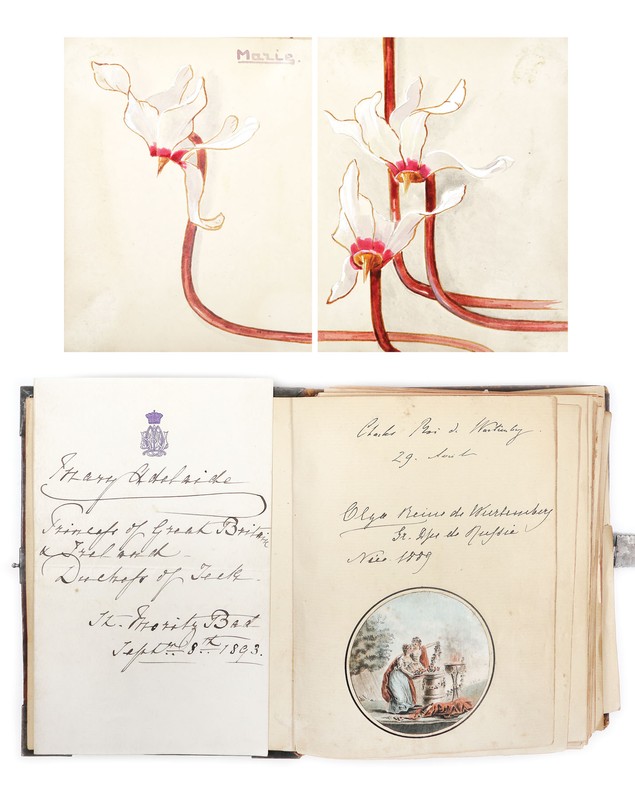 Marie.
Mary Adelaide
Princess of Great Britain
& Ireland
Duchess of Teck.
St. Moritz Bad
Septbr. 8th 1893.
Charles Roi de Wurtemberg.
29. Aout
Olga Reine de Wurtemberg
Gr. Dsse de Russie
Nice 1889